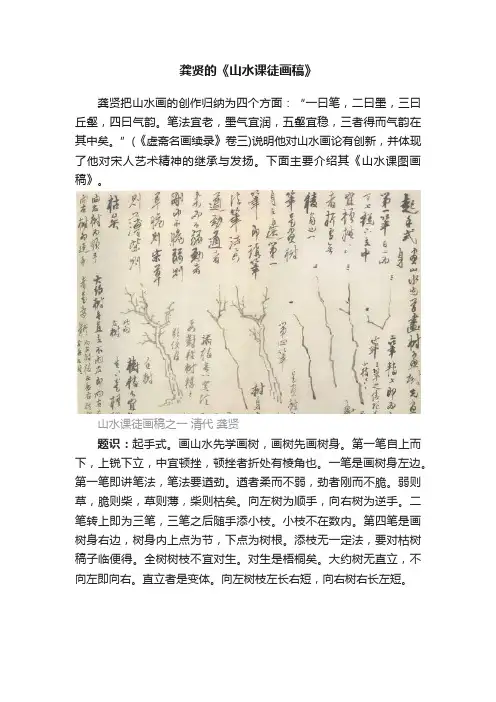 龚贤的《山水课徒画稿》
龚贤把山水画的创作归纳为四个方面：“一曰笔，二曰墨，三曰
丘壑，四曰气韵。笔法宜老，墨气宜润，五壑宜稳，三者得而气韵在
其中矣。”(《虚斋名画续录》卷三)说明他对山水画论有创新，并体现
了他对宋人艺术精神的继承与发扬。下面主要介绍其《山水课图画
稿》。
起手式
第一筆自上而
稜角也一
筆是畫樹
身左邊第一
筆即講筆
法筆法要
遒勁遒者
柔而不弱勁者
剛而不脆弱則
草脆則柴草
則薄柴則
枯矣
向左樹為順手
向右樹為逆手
第四筆
山水课徒画稿之一 清代 龚贤
题识：起手式。画山水先学画树，画树先画树身。第一笔自上而
下，上锐下立，中宜顿挫，顿挫者折处有棱角也。一笔是画树身左边。
第一笔即讲笔法，笔法要遒劲。遒者柔而不弱，劲者刚而不脆。弱则
草，脆则柴，草则薄，柴则枯矣。向左树为顺手，向右树为逆手。二
笔转上即为三笔，三笔之后随手添小枝。小枝不在数内。第四笔是画
树身右边，树身内上点为节，下点为树根。添枝无一定法，要对枯树
稿子临便得。全树树枝不宜对生。对生是梧桐矣。大约树无直立，不
向左即向右。直立者是变体。向左树枝左长右短，向右树右长左短。